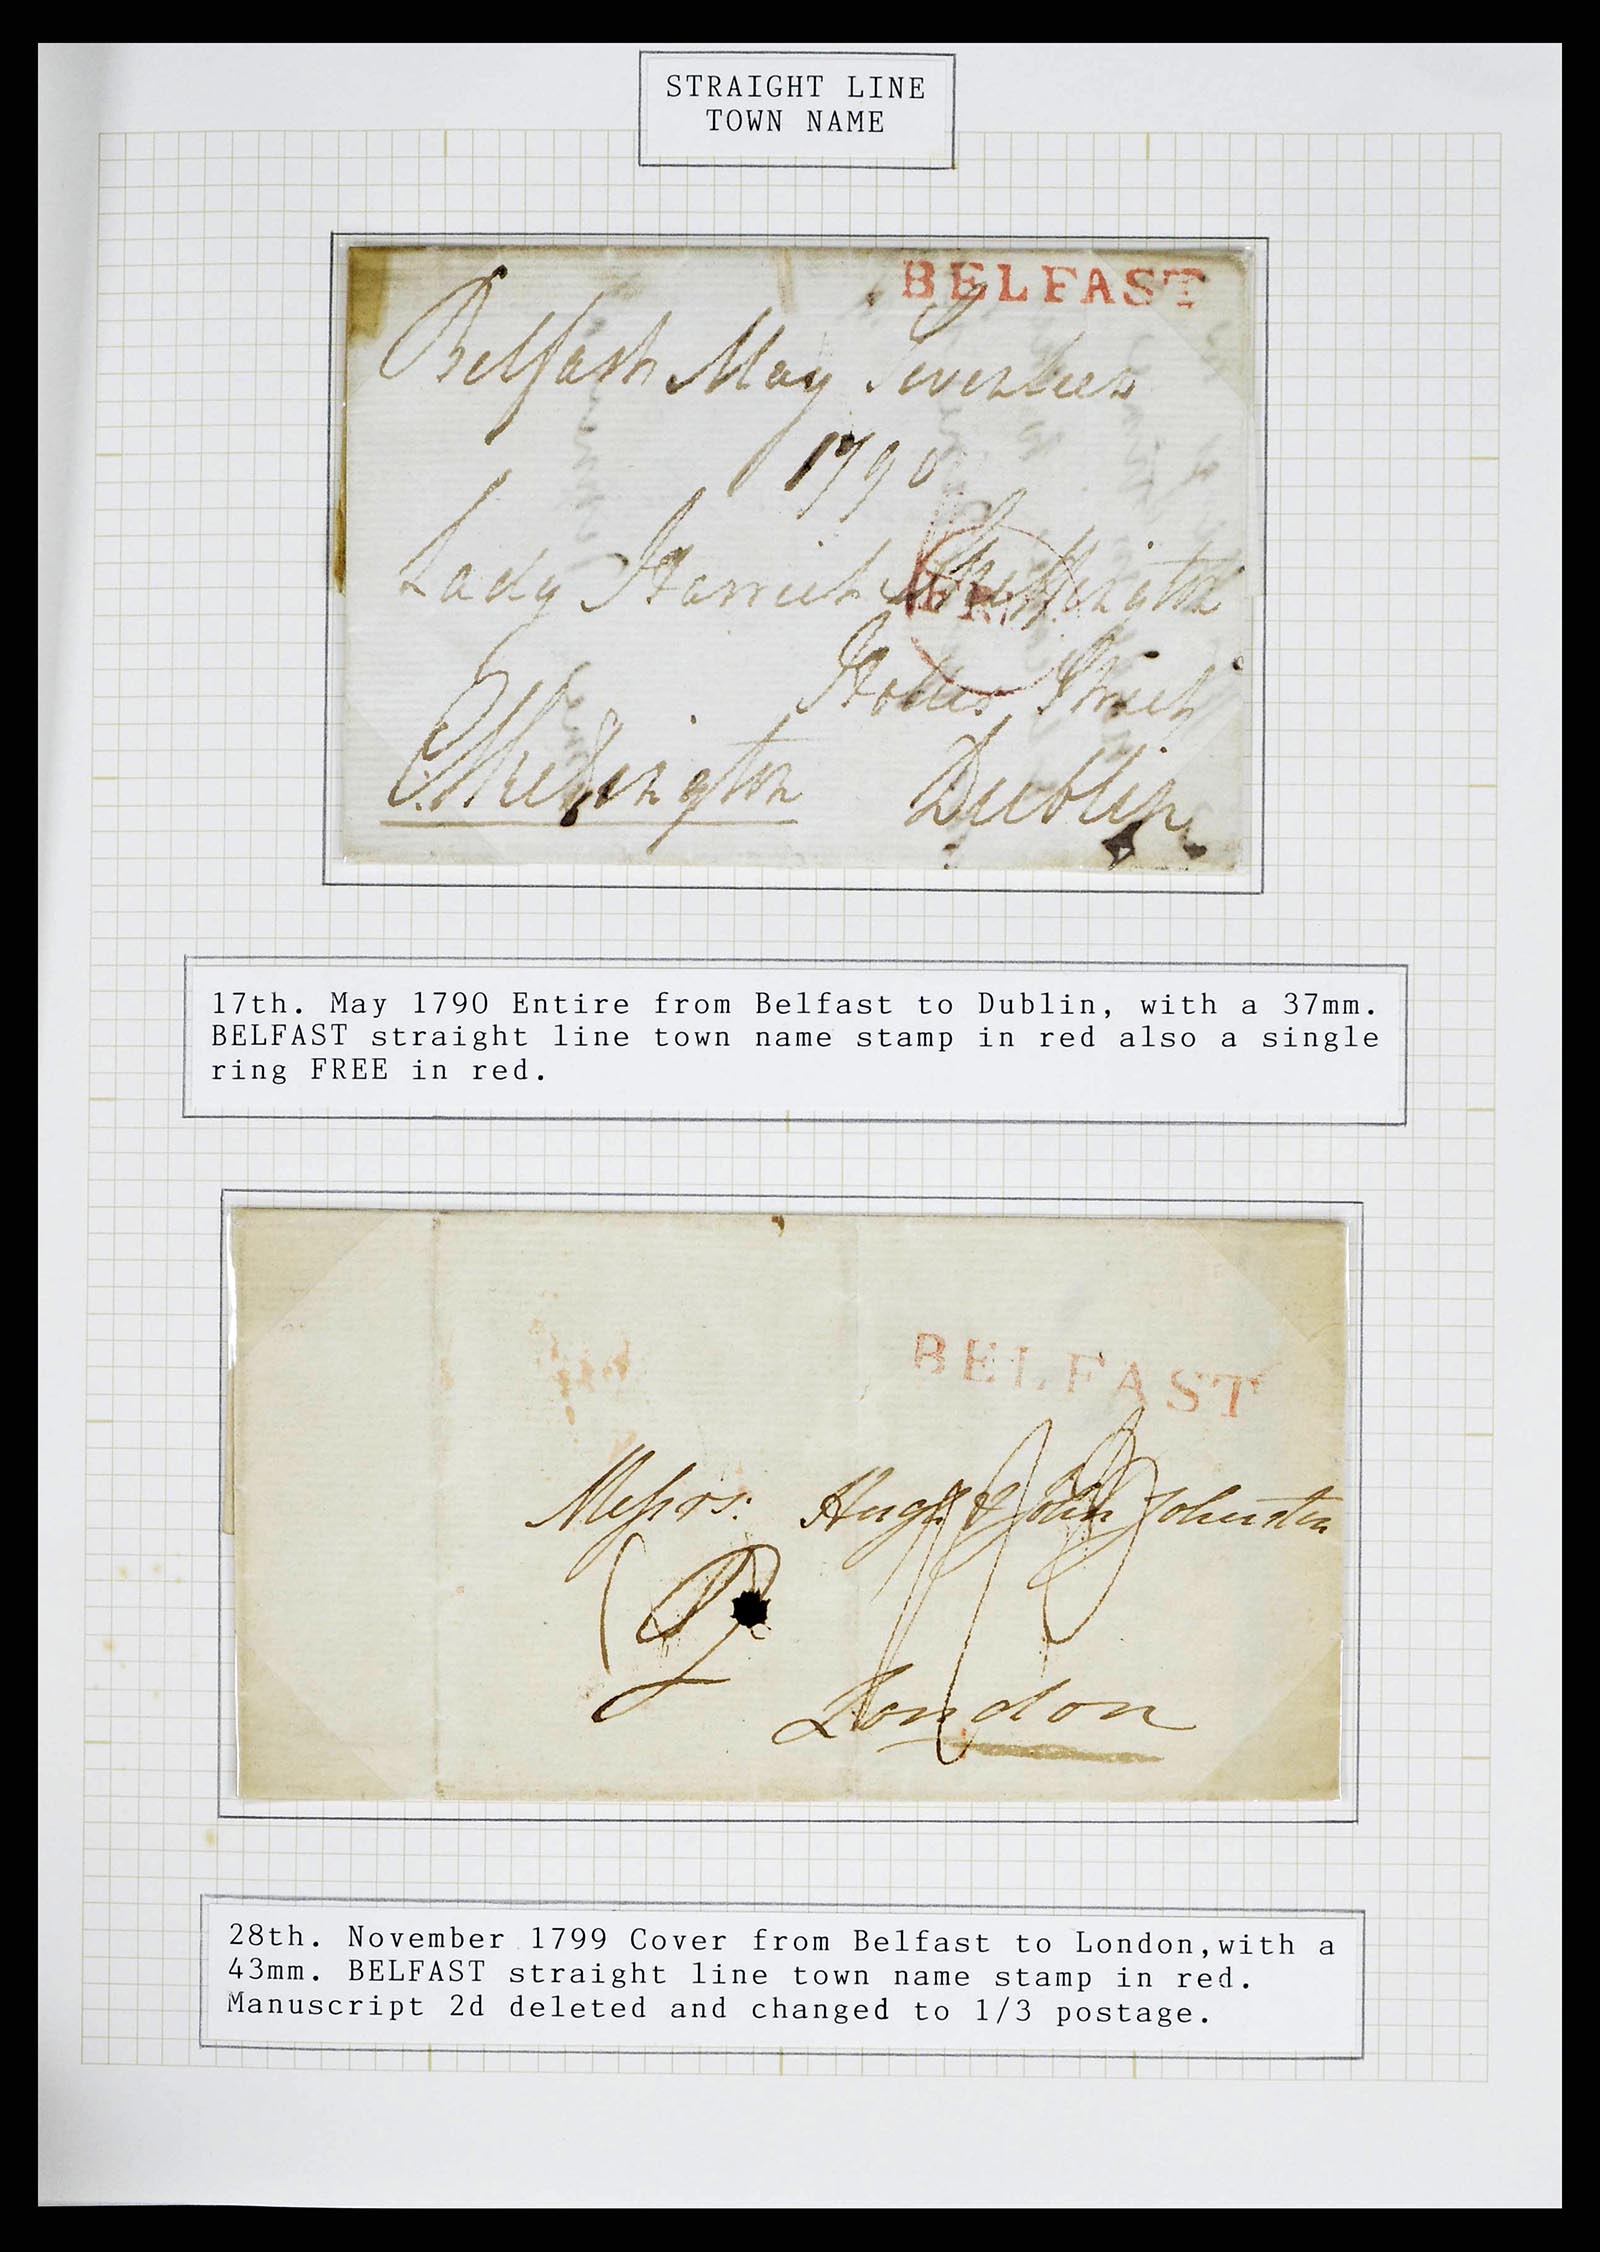 STRAIGHT LINE
TOWN NAME
BELFAST
Belfast May Seventeen
1790
Lady Harriet Skeffington
Street
Dublin
Skeffington
17th. May 1790 Entire from Belfast to Dublin, with a 37mm.
BELFAST straight line town name stamp in red also a single
ring FREE in red.
BELFAST
Messrs: Hugh & John Johnston
London
28th. November 1799 Cover from Belfast to London,with a
43mm. BELFAST straight line town name stamp in red.
Manuscript 2d deleted and changed to 1/3 postage.